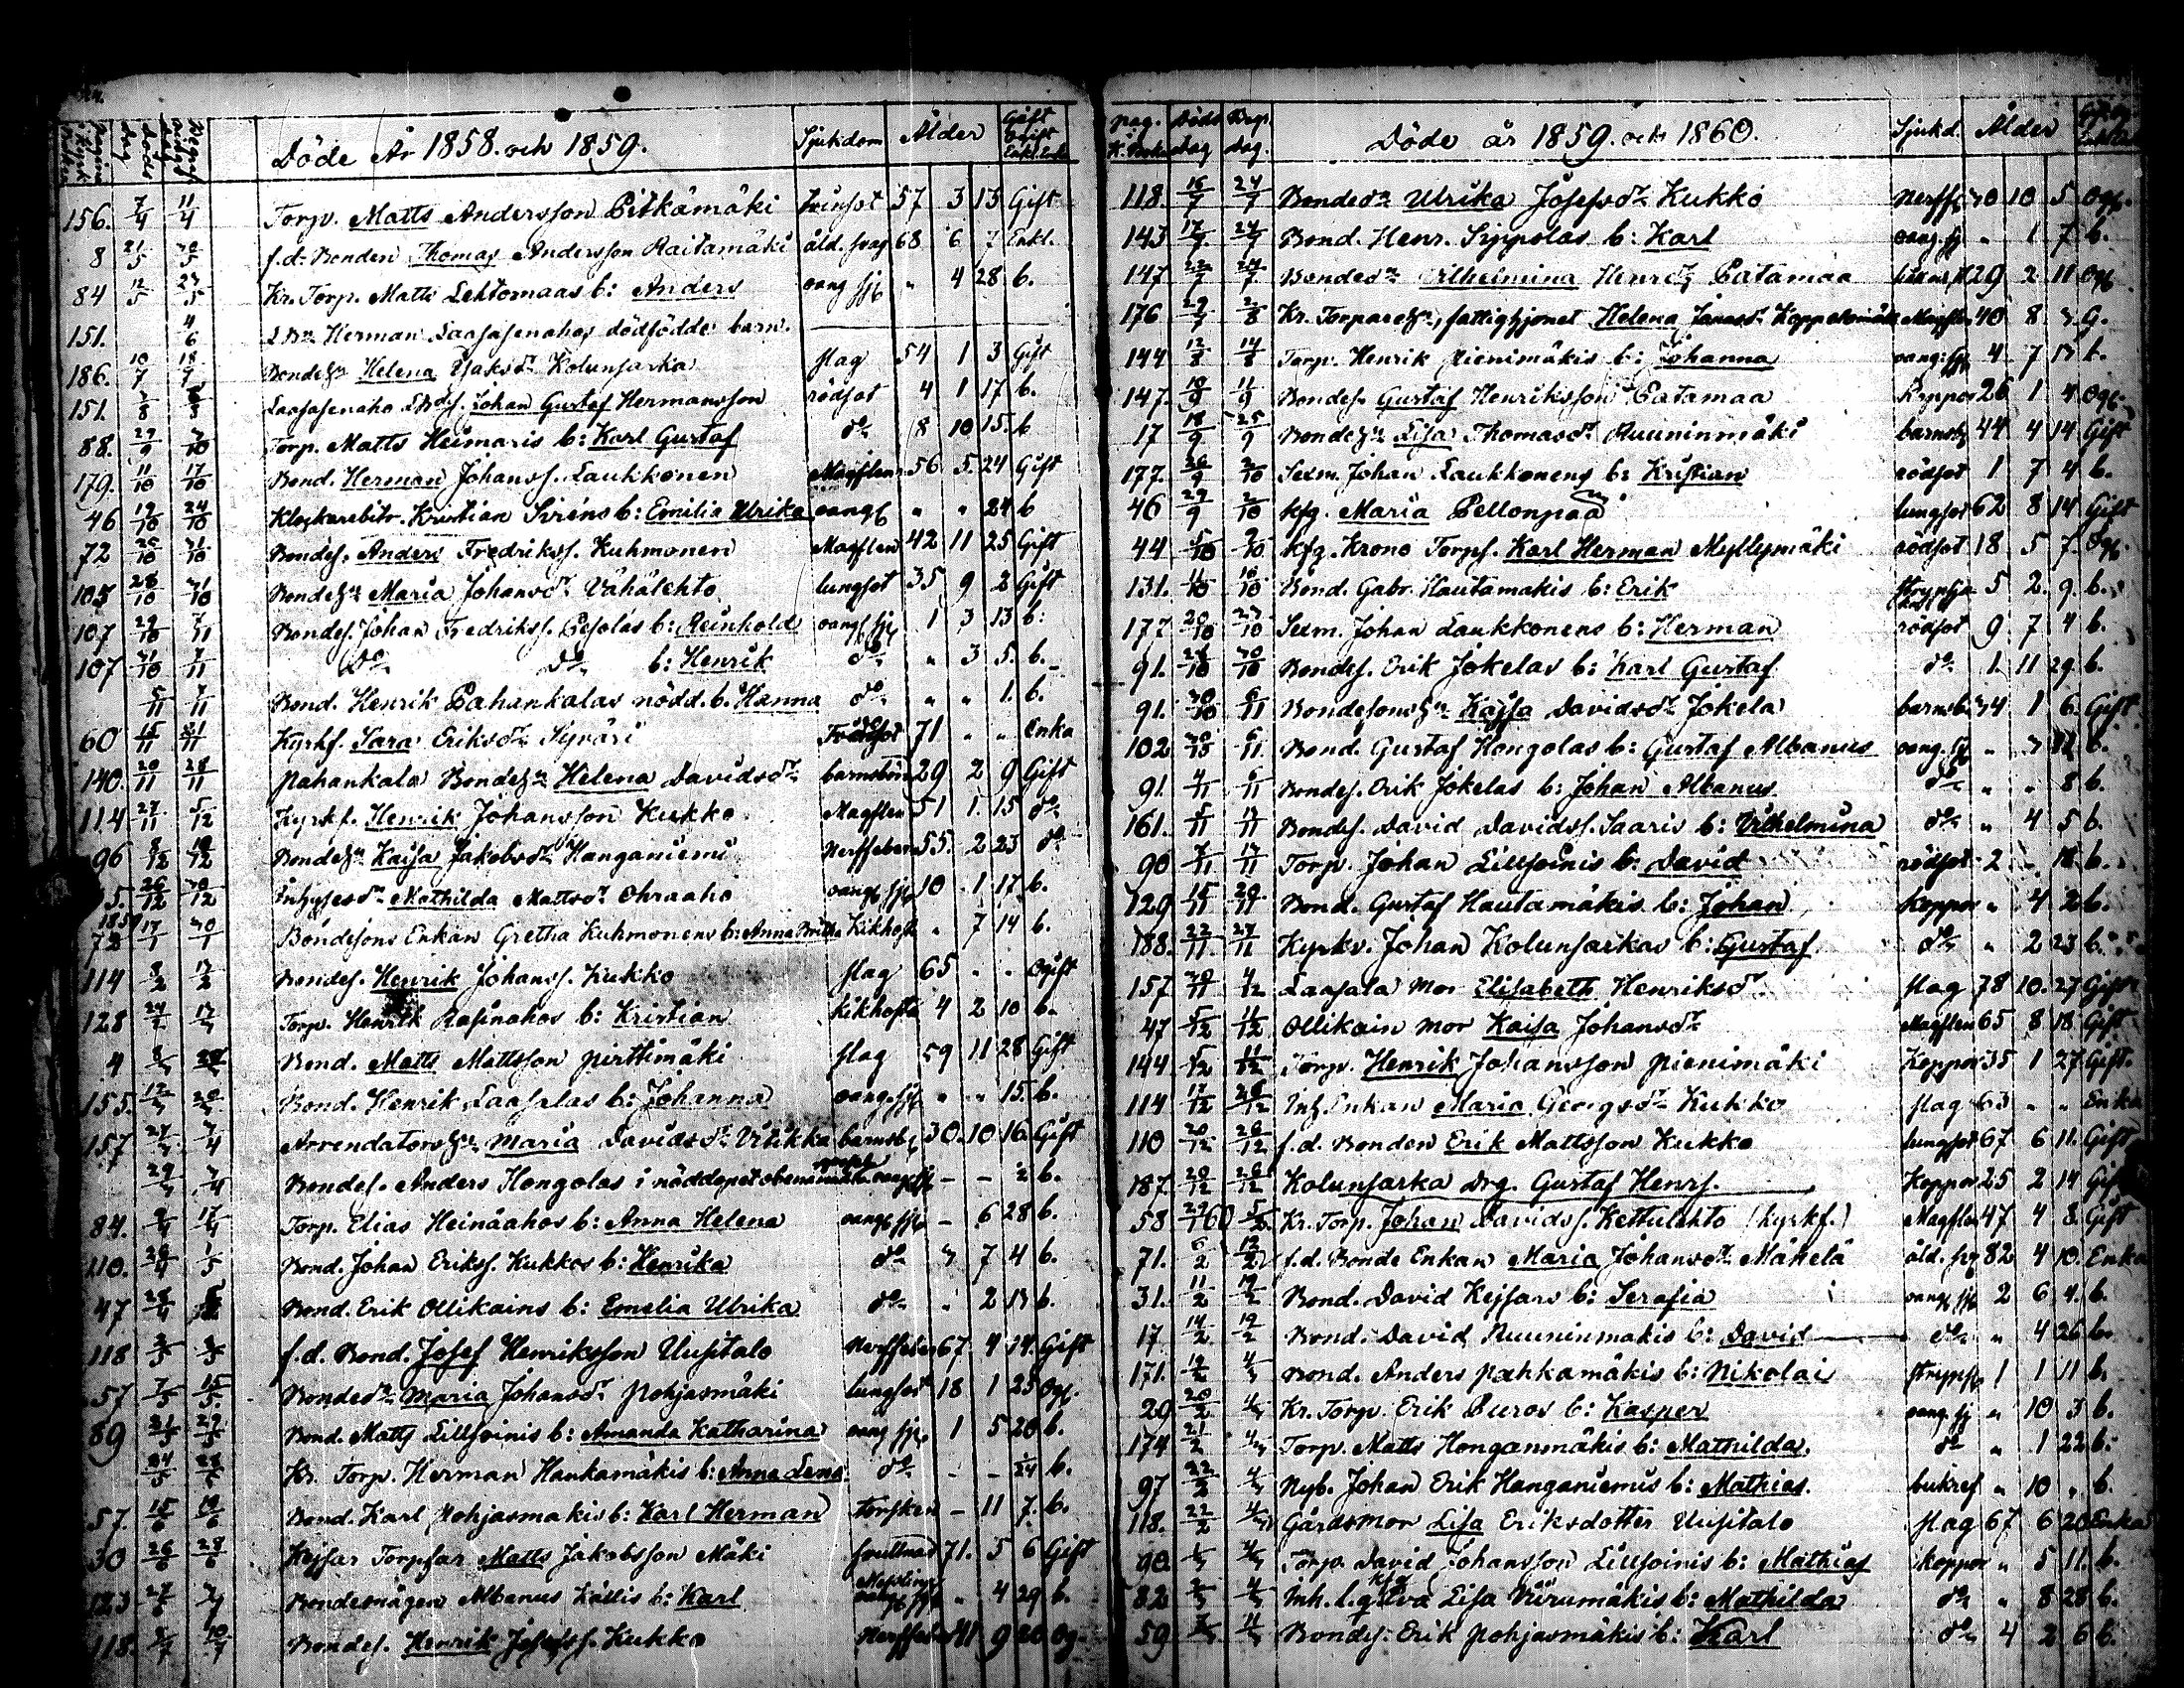 Pagina i Kyrk Boken Döds dag Begrafnings dag Döde År 1858. och 1859. Sjukdom Ålder Gift Ogift Enkl. Enka
156. 7/4 11/4 Torp. Matts Andersson Pitkämäki 57 3 13 Gift
8 21/5 30/5 f.d. Bonden Thomas Andersson Raitamäki åld. svag 68 6 7 Enkl.
84 12/5 23/5 Kr. Torp. Matts Lehtomaas b: Anders oang sj 4 28 b.
151. 4/6 Herman Laasasenahos dödfödde barn.
186. 10/7 18/7 Helena Isaksdr Kolunsarka slag 54 1 3 Gift
151. Laasasenaho Johan Gustaf Hermansson rödsot 4 1 17 b.
88. 29/9 3/10 Torp. Matts Heimaris b: Karl Gustaf do 8 10 15. b
179. 11/10 17/10 Bond. Herman Johanss. Laukkonen Magflen 56 5. 24 Gift
46 19/10 24/10 Kristian Siréns b: Emilia Ulrika oang " " 24 b
72 25/10 31/10 Bondes. Anders Fredrikss. Kuhmonen Magflen 42 11 25 Gift
105 28/10 31/10 Maria Johansdr Vähälehto lungsot 35 9 2 Gift
107 29/10 7/11 Bondes. Johan Fredrikss. Pesolas b: Reinhold oang sj 1 3 13 b.
107 31/10 7/11 Do Do b: Henrik do " 3 5. b.
5/11 7/11 Bond. Henrik Pahankalas nödd. b. Hanna do " " 1. b.
60 15/11 21/11 Kyrkf. Sara Eriksdr Syväri 71 " " Enka
140. 20/11 28/11 Pahankala Helena Davidsdr barnsbörd 29 2 9 Gift
114 27/11 5/12 Kyrkf. Henrik Johansson Kukko Magflen 51 1. 15 do
96 Kaisa Jakobsdr Hanganiemi Nerffeber 55. 2 23 do
26/12 30/12 Mathilda Mattsdr Ohraaho oang sj 10 1 17. b.
1859 72 17/1 30/1 Bondesons Enkan Gretha Kuhmonens b: Anna Britha Kikhosta " 7 14 b.
114 Bondes. Henrik Johanss. Kukko slag 65 " " Ogift
128 Torp. Henrik Rasinahos b: Kristian Kikhosta 4 2 10 b.
4 Bond. Matts Mattsson Pirttimäki slag 59 11 28 Gift
155. Bond. Henrik Laasalas b: Johanna oang. sj " " 15. b.
157 Maria Davidsdr Viitikka barnsb. 30. 10 16 Gift
Bondes. Anders Hongolas i nöddopet b.
84. Torp. Elias Heinäahos b: Anna Helena oang sj - 6 28 b.
110. 26/4 1/5 Bond. Johan Erikss. Kukkos b: Henrika do 3 7 4 b.
47 Bond. Erik Ollikains b: Emelia Ulrika do " 2 13 b.
118 f.d. Bond. Josef Henriksson Uusitalo Nerffeber 67. 4 14. Gift
57 7/5 15/5 Maria Johansdr Pohjasmäki lungsot 18 1 25 Og.
89 Bond. Matts Lillsoinis b: Amanda Katharina oang sj 1 5 20 b.
24/5 Kr. Torp. Herman Hankamäkis b: Anna Lena do - - 1/24 b.
57. 15/6 19/6 Bond. Karl Pohjasmakis b: Karl Herman torsken - 11 7. b.
30 26/6 28/6 Kejsar Torpsar Matts Jakobsson Mäki 71. 5 6 Gift
123 Albanus Kallis b: Karl " 4 29 b.
118. Bondes. Henrik Josefss. Kukko Nerffeber 41 9 20 Og.
pag. K. Boken Döds dag Begr. dag. Döde år 1859. och 1860. Sjukd. Ålder
118. 16/7 24/7 Ulrika Josefsdr Kukko Nerff. 30 10 5 Og.
143 17/7 24/7 Bond. Henr. Sippolas b: Karl oang. sj " 1 7 b.
147. Vilhelmina Henrdr Patamaa 29 2 11 Og.
176 Kr. fattighjonet Helena Magflen 40 8 3 G.
144 12/8 14/8 Torp. Henrik Pienimäkis b: Johanna oang. sj 4 7 b.
147. 10/9 11/9 Bondes. Gustaf Henriksson Patamaa Koppor 26 1 4 Og.
17 18/9 25/9 Lisa Thomasdr Ruuninmäki barnsb. 44 4 14 Gift
177. 26/9 2/10 Johan Laukkonens b: Kristian rödsot 1 7 4 b.
46 29/9 2/10 kfg. Maria Pellonpää lungsot 62 8 14 Gift
44 kfg. Krono Torps. Karl Herman Myllymäki rödsot 18 5 7. Og.
131. 11/10 16/10 Bond. Gabr. Hautamakis b: Erik 5 2. 9. b.
177 20/10 23/10 Johan Laukkonens b: Herman rödsot 9 7 4 b.
91. Bondes. Erik Jokelas b: Karl Gustaf do 1. 11 29. b.
91. 30/10 6/11 Kajsa Davidsdr Jokela barnsb. 34 1 6. Gift
102 30/10 6/11 Bond. Gustaf Hongolas b: Gustaf Albanus oang. sj " 3 b.
91. 4/11 6/11 Bondes. Erik Jokelas b: Johan Albanus do " " 8 b.
161. Bondes. David Davidss. Saaris b: Vilhelmina do " 4 5 b.
90 Torp. Johan Lillsoinis b: David rödsot 2 - 18 b.
129 15/11 20/11 Bond. Gustaf Hautamäkis b: Johan Koppor " 4 2 b.
188. 22/11 27/11 Kyrkv. Johan Kolunsarkas b: Gustaf do " 2 23 b.
157 30/11 4/12 Laasala Mor Elisabeth Henriksdr slag 78 10. 27 Gift
47 5/12 11/12 Ollikain mor Kaisa Johansdr Magflen 65 8 18 Gift
144 5/12 11/12 Torp. Henrik Johansson Pienimäki Koppor 35 1 27 Gift.
114 17/12 26/12 Inh. Enkan Maria Georgsdr Kukko slag 63 " " Enka
110 20/12 26/12 f.d. Bonden Erik Mattsson Kukko lungsot 67 6 11. Gift
187. 20/12 26/12 Kolunsarka Drg. Gustaf Henrs. Koppor 25 2 14 Gift
58 60 Kr. Torp. Johan Davidss. Kettulehto (kyrkf.) Magflen 47 4 8 Gift
71. 6/2 12/2 f.d. Bonde Enkan Maria Johansdr Mäkelä åld. 82 4 10. Enka
31. 11/2 19/2 Bond. David Kejsars b: Serafia oang sj 2 6 4. b.
17 14/2 19/2 Bond. David Ruuninmakis b: David do " 4 26 b.
171. Bond. Anders Pahkamäkis b: Nikolai 1 1 11 b.
29 Kr. Torp. Erik Puros b: Kasper oang. sj " 10 3 b.
174 Torp. Matts Honganmäkis b: Mathilda do " 1 22 b.
97 Nyb. Johan Erik Hanganiemis b: Mathias bukref " 10 " b.
118. Gårdsmor Lisa Eriksdotter Uusitalo slag 67 6 20 Enka
90 Torp. David Johansson Lillsoinis b: Mathias koppor " 5 11. b.
82 Inh. Eva Lisa Viirumäkis b: Mathilda do " 8 28 b.
59 Bondes. Erik Pohjasmäkis b: Karl do 4 2 6 b.